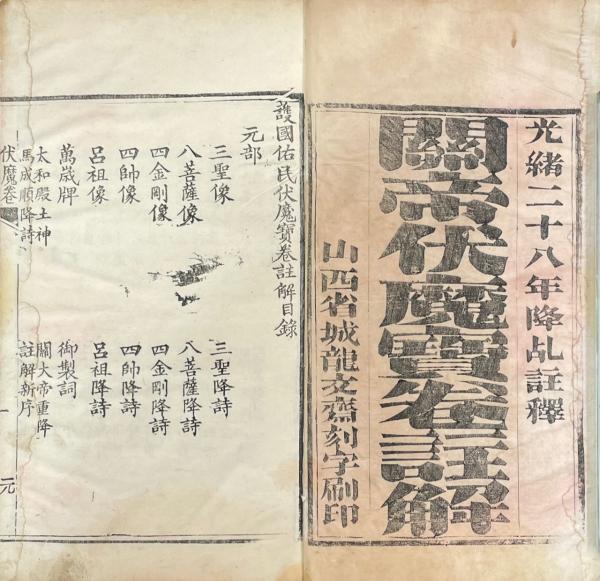 光緒二十八年降乩註釋
關帝伏魔寶卷註解
山西省城龍文齋刻字刷印
護國佑民伏魔寶卷註解目錄
元部
三聖像
三聖降詩
八菩薩像
八菩薩降詩
四金剛像
四金剛降詩
四帥像
四帥降詩
呂祖像
呂祖降詩
萬歲牌
御製詞
太和殿土神
馬成順降詩
關大帝重降
註解新序
伏魔卷
一
元